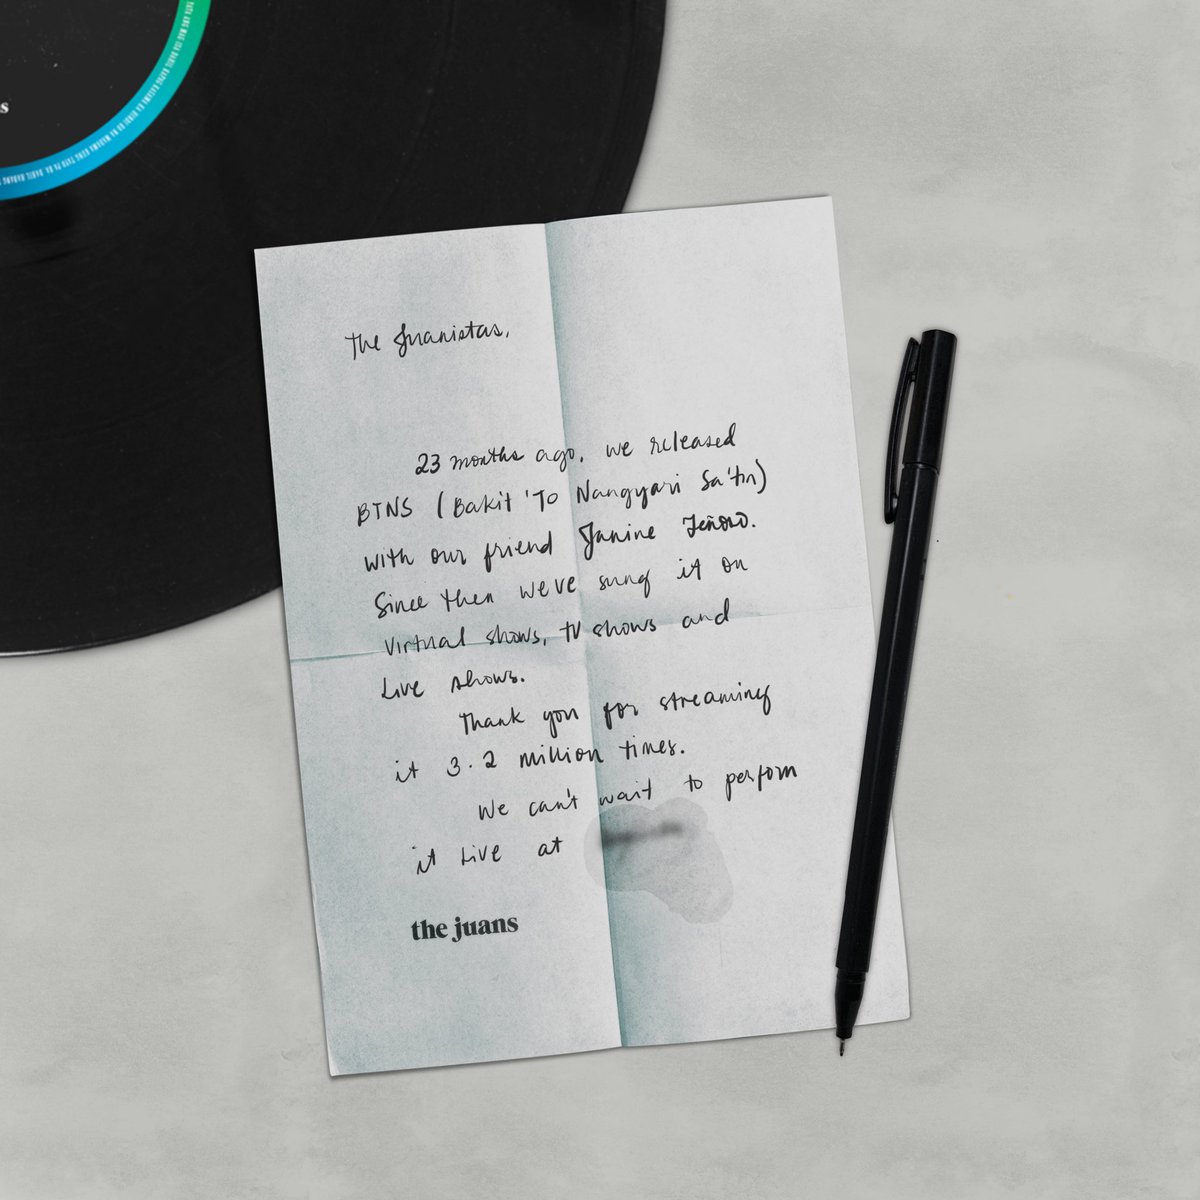 s
The Juanistas,
23 months ago, we released
BTNS (Bakit 'To Nangyari Sa'tin)
with our friend Janine Teñoso.
Since then we've sung it on
virtual shows, TV shows and
Live shows.
Thank you for streaming
it 3.2 million times.
We can't wait to perform
it Live at
the juans